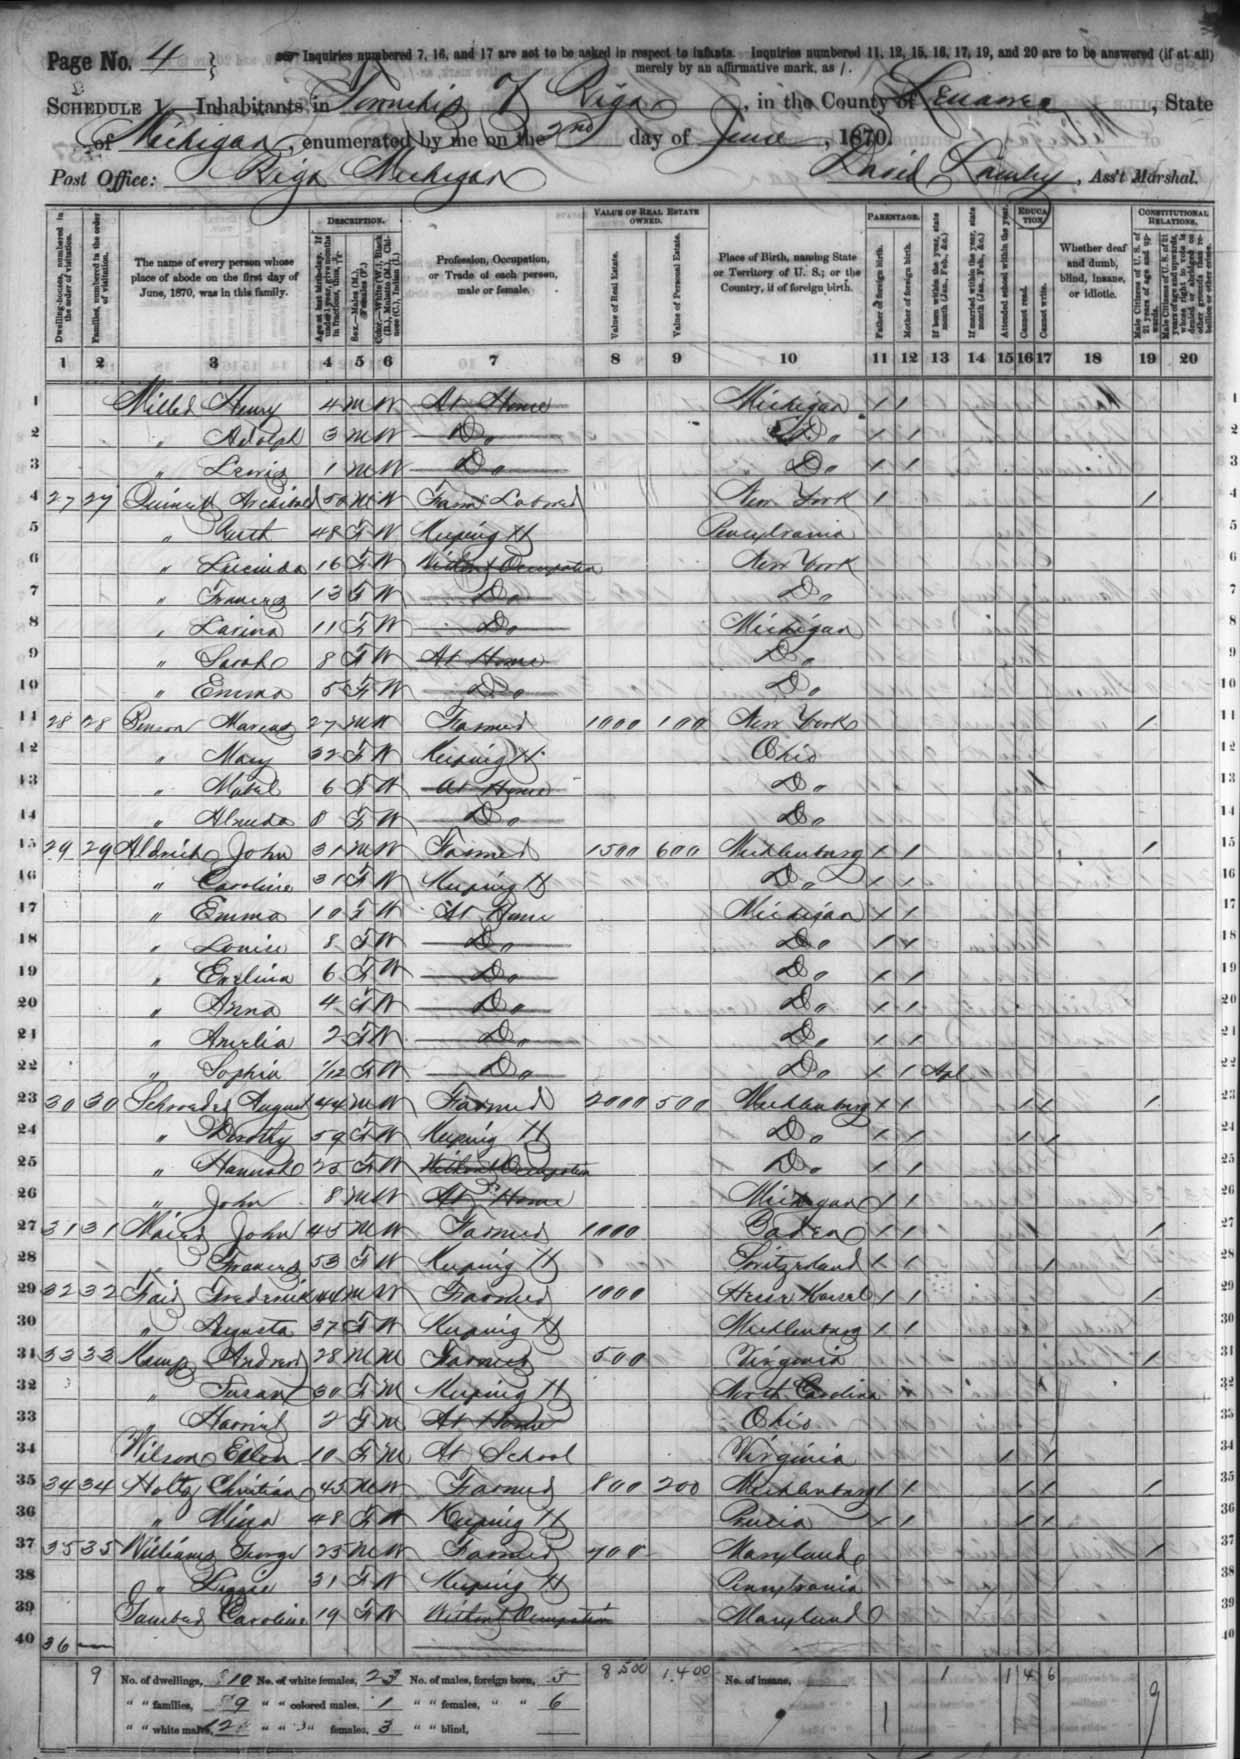 Page No. 4
Inquiries numbered 7, 16, and 17 are not to be asked in respect to infants. Inquiries numbered 11, 12, 15, 16, 17, 19, and 20 are to be answered (if at all)
merely by an affirmative mark, as /.
SCHEDULE 1.—Inhabitants in Township of Riga, in the County of Lenawee, State
of Michigan, enumerated by me on the 2nd day of June, 1870.
Post Office: Riga Michigan David , Ass't Marshal.
Dwelling-houses, numbered in the order of visitation.
Families, numbered in the order of visitation.
The name of every person whose place of abode on the first day of June, 1870, was in this family.
DESCRIPTION.
Age at last birth-day. If under 1 year, give months in fractions, thus, 3/12
Sex.—Males (M.), Females (F.)
Color.—White (W.), Black (B.), Mulatto (M.), Chinese (C.), Indian (I.)
Profession, Occupation, or Trade of each person, male or female.
VALUE OF REAL ESTATE OWNED.
Value of Real Estate.
Value of Personal Estate.
Place of Birth, naming State or Territory of U. S.; or the Country, if of foreign birth.
PARENTAGE.
Father of foreign birth.
Mother of foreign birth.
If born within the year, state month (Jan., Feb., &c.)
If married within the year, state month (Jan., Feb., &c.)
Attended school within the year.
EDUCATION.
Cannot read.
Cannot write.
Whether deaf and dumb, blind, insane, or idiotic.
CONSTITUTIONAL RELATIONS.
Male Citizens of U. S. of 21 years of age and upwards.
1 2 3 4 5 6 7 8 9 10 11 12 13 14 15 16 17 18 19 20
1 Miller Henry 4 M W At Home Michigan / / 1
2 " Adolph 3 M W Do Do / / 2
3 " Lewis 1 M W Do Do / / 3
4 27 27 Archibald M W Farm Laborer New York / / 4
5 " Ruth 48 F W Keeping H Pensylvania 5
6 " Lucinda 16 F W Without Occupation New York 6
7 " Frances 13 F W Do Do 7
8 " Lavina 11 F W Do Michigan 8
9 " Sarah 8 F W At Home Do 9
10 " Emma 5 F W Do Do 10
11 28 28 Marcus 27 M W Farmer 1000 100 New York / 11
12 " Mary 32 F W Keeping H Ohio 12
13 " Mabel 6 F W At Home Do 13
14 " Almeda 8 F W Do Do 14
15 29 29 Aldrich John 31 M W Farmer 1500 600 Mecklenburg / / / 15
16 " Caroline 31 F W Keeping H Do / / 16
17 " Emma 10 F W At Home Michigan / / 17
18 " Louise 8 F W Do Do / / 18
19 " Evelina 6 F W Do Do / / 19
20 " Anna 4 F W Do Do / / 20
21 " Amelia 2 F W Do Do / / 21
22 " Sophia 1/12 F W Do Do / / Apl 22
23 30 30 Schroeder August 44 M W Farmer 2000 500 Mecklenburg / / / / / 23
24 " Dorothy 59 F W Keeping H Do / / / / 24
25 " Hannah 25 F W Without Occupation Do / / 25
26 " John 8 M W At Home Michigan / / 26
27 31 31 Maier John 45 M W Farmer 1000 Baden / / / 27
28 " Frances 53 F W Keeping H Switzerland / / / 28
29 32 32 Frederick 44 M W Farmer 1000 Hesse Kassel / / / 29
30 " Augusta 37 F W Keeping H Mecklenburg / / 30
31 33 33 Kemp Andrew 28 M M Farmer 500 Virginia / 31
32 " Susan 30 F M Keeping H North Carolina 32
33 " Harriet 2 F M At Home Ohio 33
34 Wilson Ellen 10 F M At School Virginia / / 34
35 34 34 Holtz Christian 45 M W Farmer 800 200 Mecklenburg / / / / / 35
36 " Mina 48 F W Keeping H Prucia / / / / 36
37 35 35 Williams George 25 M W Farmer 700 Maryland / 37
38 " Lizzie 31 F W Keeping H Pennsylvania 38
39 Caroline 19 F W Without Occupation Maryland 39
40 36 — 40
9 No. of dwellings, 10 No. of white females, 23 No. of males, foreign born, 5 8500 1,400 No. of insane, 1 1 4 6
" " families, 9 " " colored males, 1 " " females, " " 6
" " white males, 12 " " " females, 3 " " blind, 9